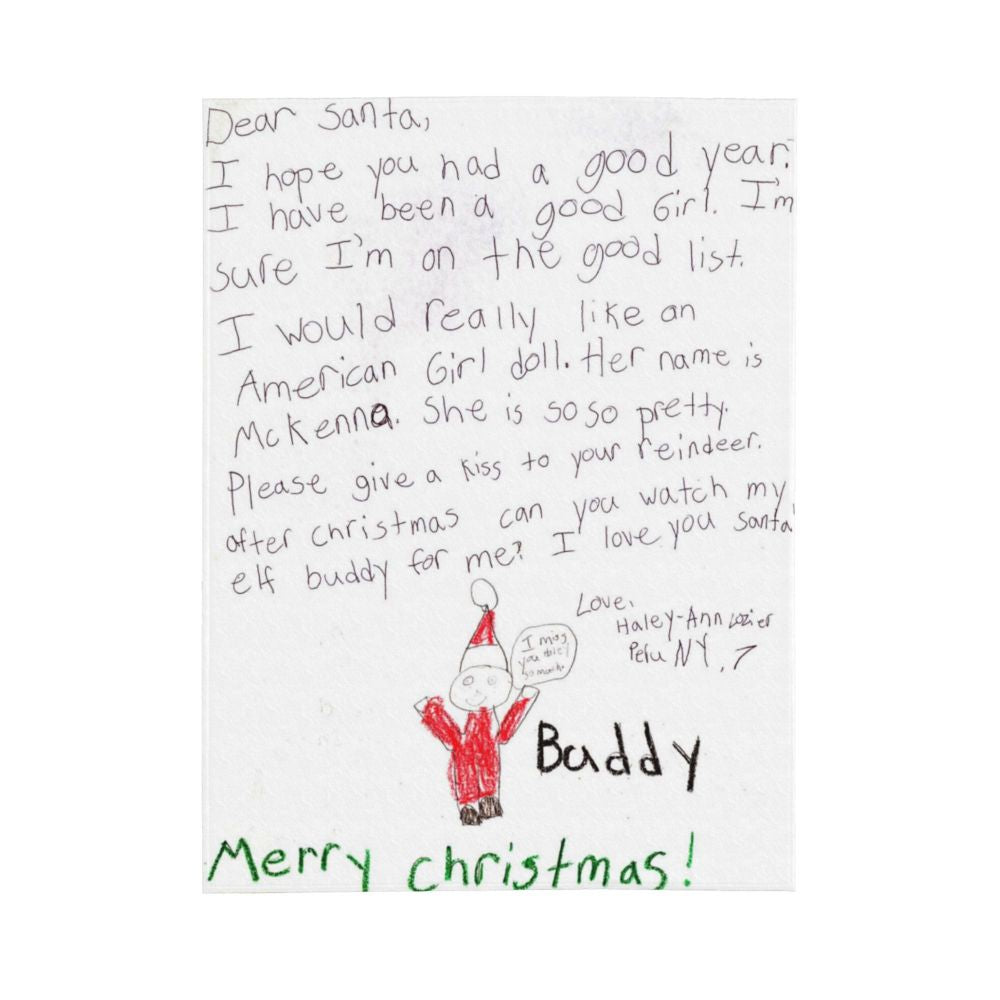 Dear Santa,
I hope you had a good year.
I have been a good Girl. I'm
sure I'm on the good list.
I would really like an
American Girl doll. Her name is
McKenna. She is so so pretty.
Please give a kiss to your reindeer.
after christmas can you watch my
elf buddy for me? I love you Santa
Love,
Haley-Ann Lozier
Peru NY, 7
I miss
you
so much.
Buddy
Merry christmas!